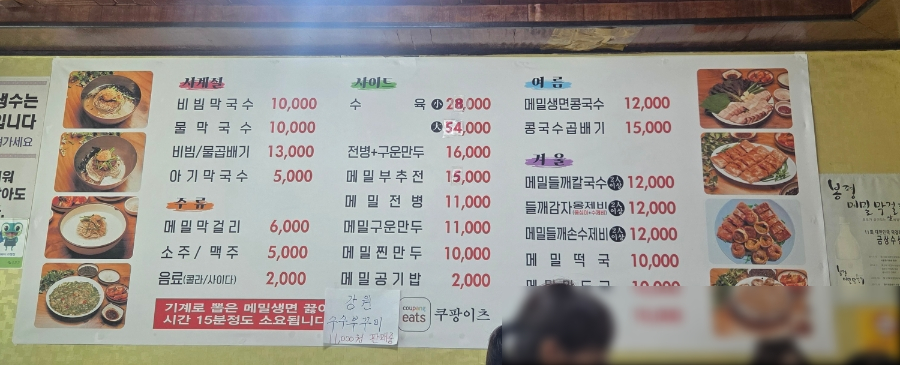 사계절
비빔막국수 10,000
물막국수 10,000
비빔/물곱배기 13,000
아기막국수 5,000
주류
메밀막걸리 6,000
소주/맥주 5,000
음료(콜라/사이다) 2,000
기계로 뽑은 메밀생면 끓
시간 15분정도 소요됩니다
사이드
수육 小 28,000
大 54,000
전병+구운만두 16,000
메밀부추전 15,000
메밀전병 11,000
메밀구운만두 11,000
메밀찐만두 10,000
메밀공기밥 2,000
강원
11,000원
coupang
eats
쿠팡이츠
여름
메밀생면콩국수 12,000
콩국수곱배기 15,000
겨울
메밀들깨칼국수 12,000
들깨감자옹심이 12,000
메밀들깨손수제비 12,000
메밀떡국 10,000
메밀만두국 10,000
생수는
입니다
가세요
봉평
메밀막걸
금상수